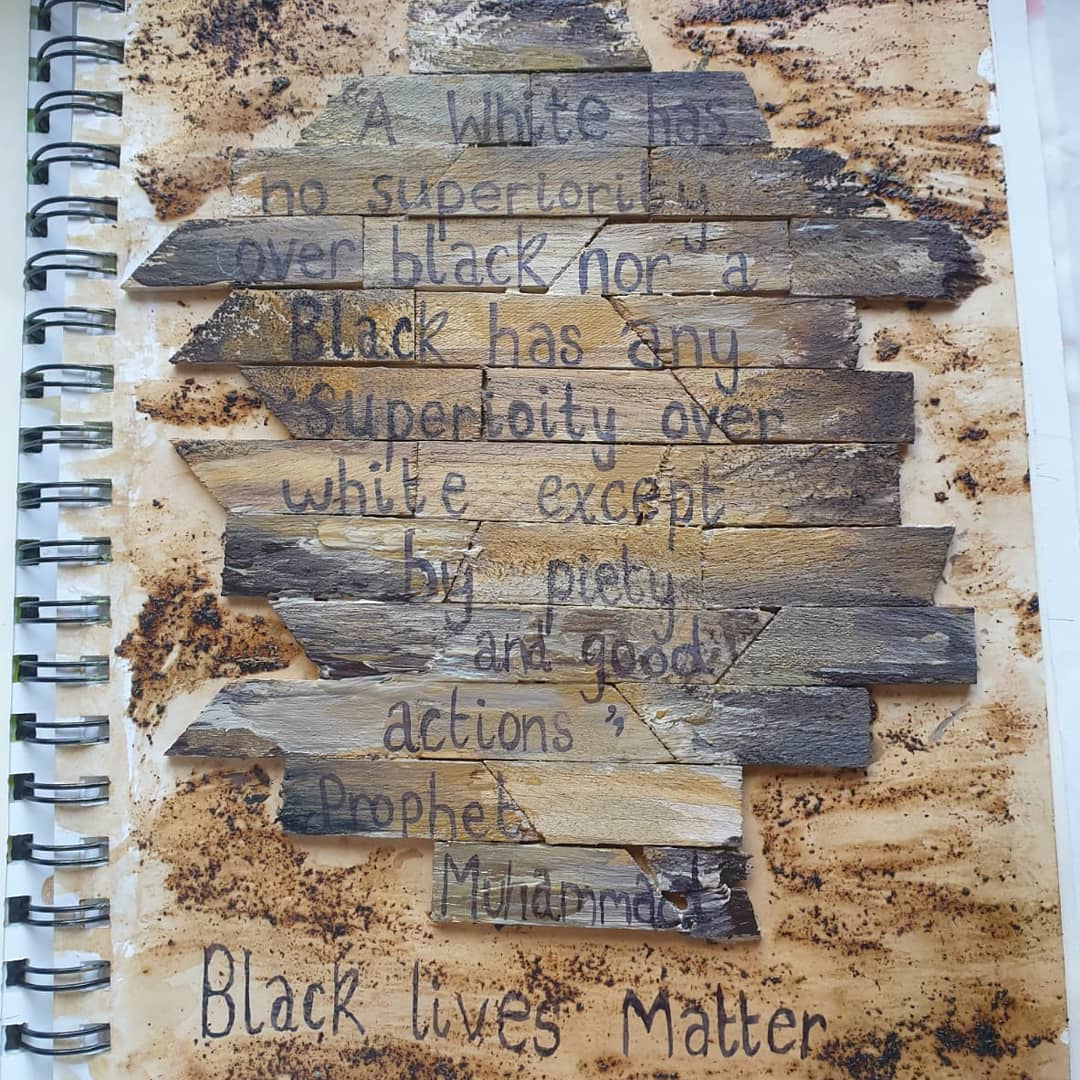 "A White has
no superiority
over black nor a
Black has any
superioity over
white except
by piety
and good
actions"
Prophet
Muhammad
Black lives Matter